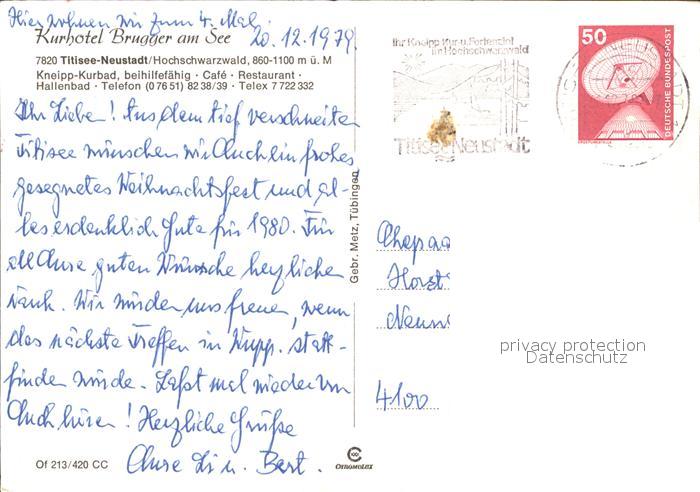 Hier wohnen wir zum 4. Mal.
Kurhotel Brugger am See
20.12.1979.
7820 Titisee-Neustadt/Hochschwarzwald, 860-1100 m ü. M
Kneipp-Kurbad, beihilfefähig · Café · Restaurant ·
Hallenbad · Telefon (0 76 51) 82 38/39 · Telex 7 722 332
Ihr Lieben! Aus dem tief verschneiten
Titisee wünschen wir Euch ein frohes
gesegnetes Weihnachtsfest und al-
les erdenklich Gute für 1980. Für
all Eure guten Wünsche herzlichen
Dank. Wir würden uns freuen, wenn
das nächste Treffen in Wupp. statt-
finden würde. Laßt mal wieder von
Euch hören! Herzliche Grüße
Eure Li u. Bert.
Of 213/420 CC
Gebr. Metz, Tübingen
CC
CHROMOLUX
Ihr Kneipp Kur-u. Ferienziel
im Hochschwarzwald
Titisee Neustadt
50
DEUTSCHE BUNDESPOST
ERDFUNKSTELLE
Ehepaa
Horst
4100
privacy protection
Datenschutz